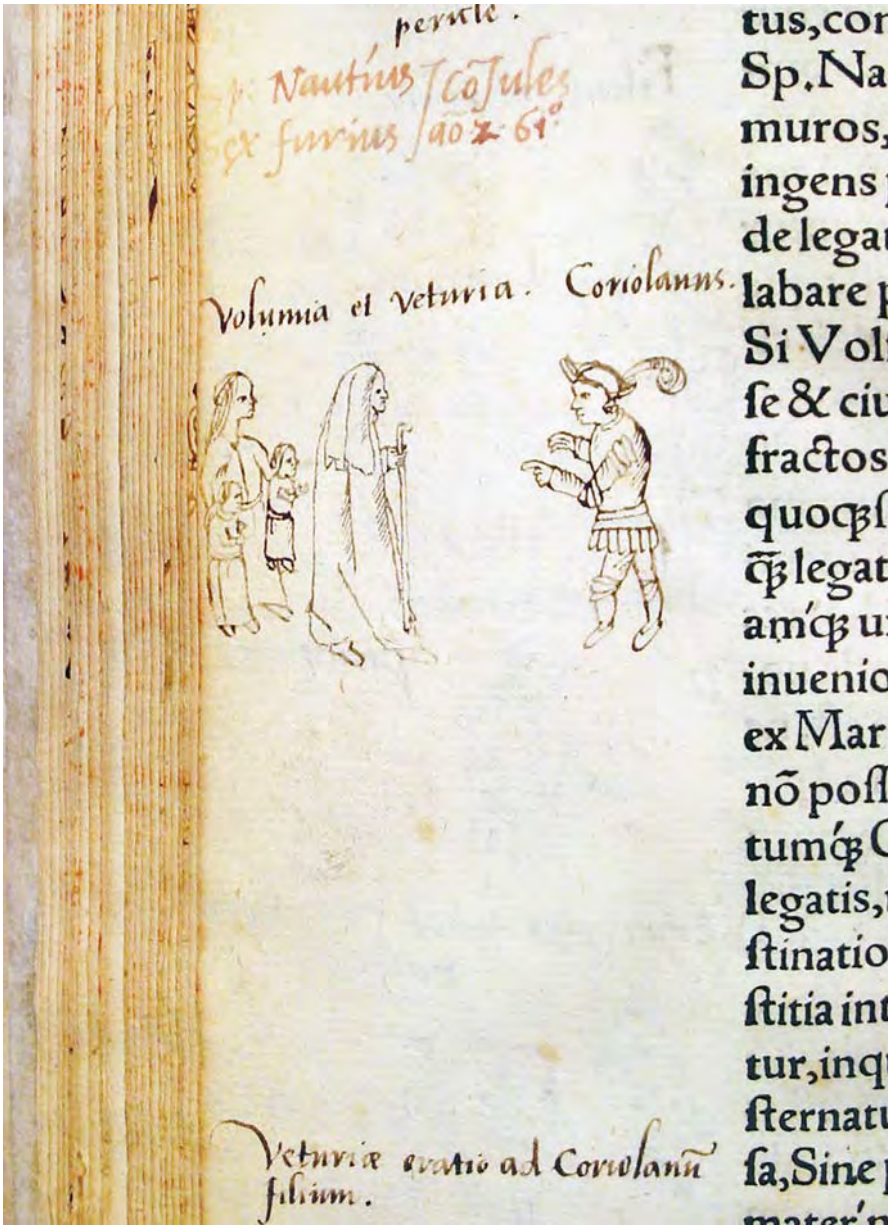 pericle.
Sp. Nautius
Sex furius
Cōsules
aō 261º
Volumnia et Veturia. Coriolanus.
Veturiæ oratio ad Coriolanū
filium.
tus,con
Sp.Na
muros,
ingens
de legat
labare p
Si Vol
ſe & ciu
fractos
quoqꝫſ
q̄ꝫ legat
amq́ꝫ u
inuenio
ex Mar
nō poſſ
tumq́ꝫ C
legatis,
ſtinatio
ſtitia int
tur,inq
ſternatu
ſa,Sine p
mater n